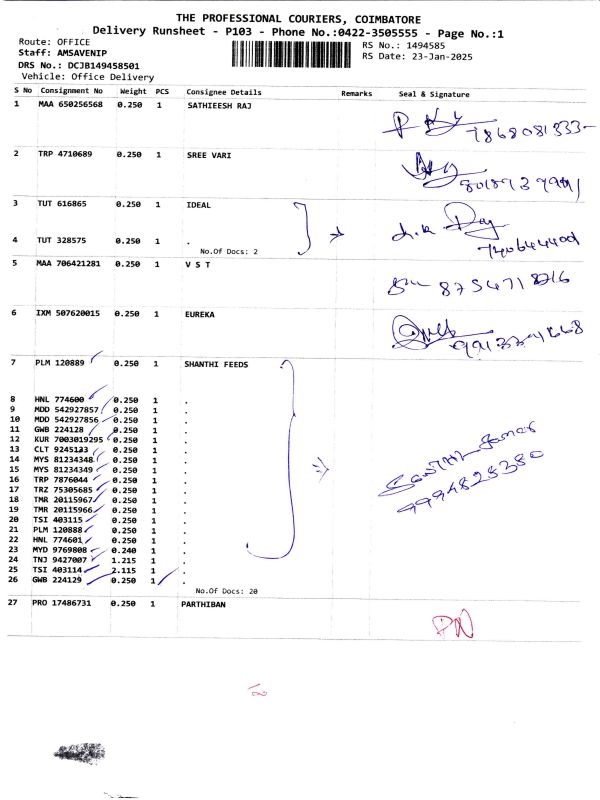 THE PROFESSIONAL COURIERS, COIMBATORE
Delivery Runsheet - P103 - Phone No.:0422-3505555 - Page No.:1
Route: OFFICE
RS No.: 1494585
Staff: AMSAVENIP
RS Date: 23-Jan-2025
DRS No.: DCJB149458501
Vehicle: Office Delivery
S No Consignment No Weight PCS Consignee Details Remarks Seal & Signature
1 MAA 650256568 0.250 1 SATHIEESH RAJ
7868081333
2 TRP 4710689 0.250 1 SREE VARI
3 TUT 616865 0.250 1 IDEAL
4 TUT 328575 0.250 1 .
No.Of Docs: 2
5 MAA 706421281 0.250 1 V S T
6 IXM 507620015 0.250 1 EUREKA
7 PLM 120889 0.250 1 SHANTHI FEEDS
8 HNL 774600 0.250 1 .
9 MDD 542927857 0.250 1 .
10 MDD 542927856 0.250 1 .
11 GWB 224128 0.250 1 .
12 KUR 7003019295 0.250 1 .
13 CLT 9245133 0.250 1 .
14 MYS 81234348 0.250 1 .
15 MYS 81234349 0.250 1 .
16 TRP 7876044 0.250 1 .
17 TRZ 75305685 0.250 1 .
18 TMR 20115967 0.250 1 .
19 TMR 20115966 0.250 1 .
20 TSI 403115 0.250 1 .
21 PLM 120888 0.250 1 .
22 HNL 774601 0.250 1 .
23 MYD 9769808 0.240 1 .
24 TNJ 9427007 1.215 1 .
25 TSI 403114 2.115 1 .
26 GWB 224129 0.250 1 .
9994828380
No.Of Docs: 20
27 PRO 17486731 0.250 1 PARTHIBAN
PN